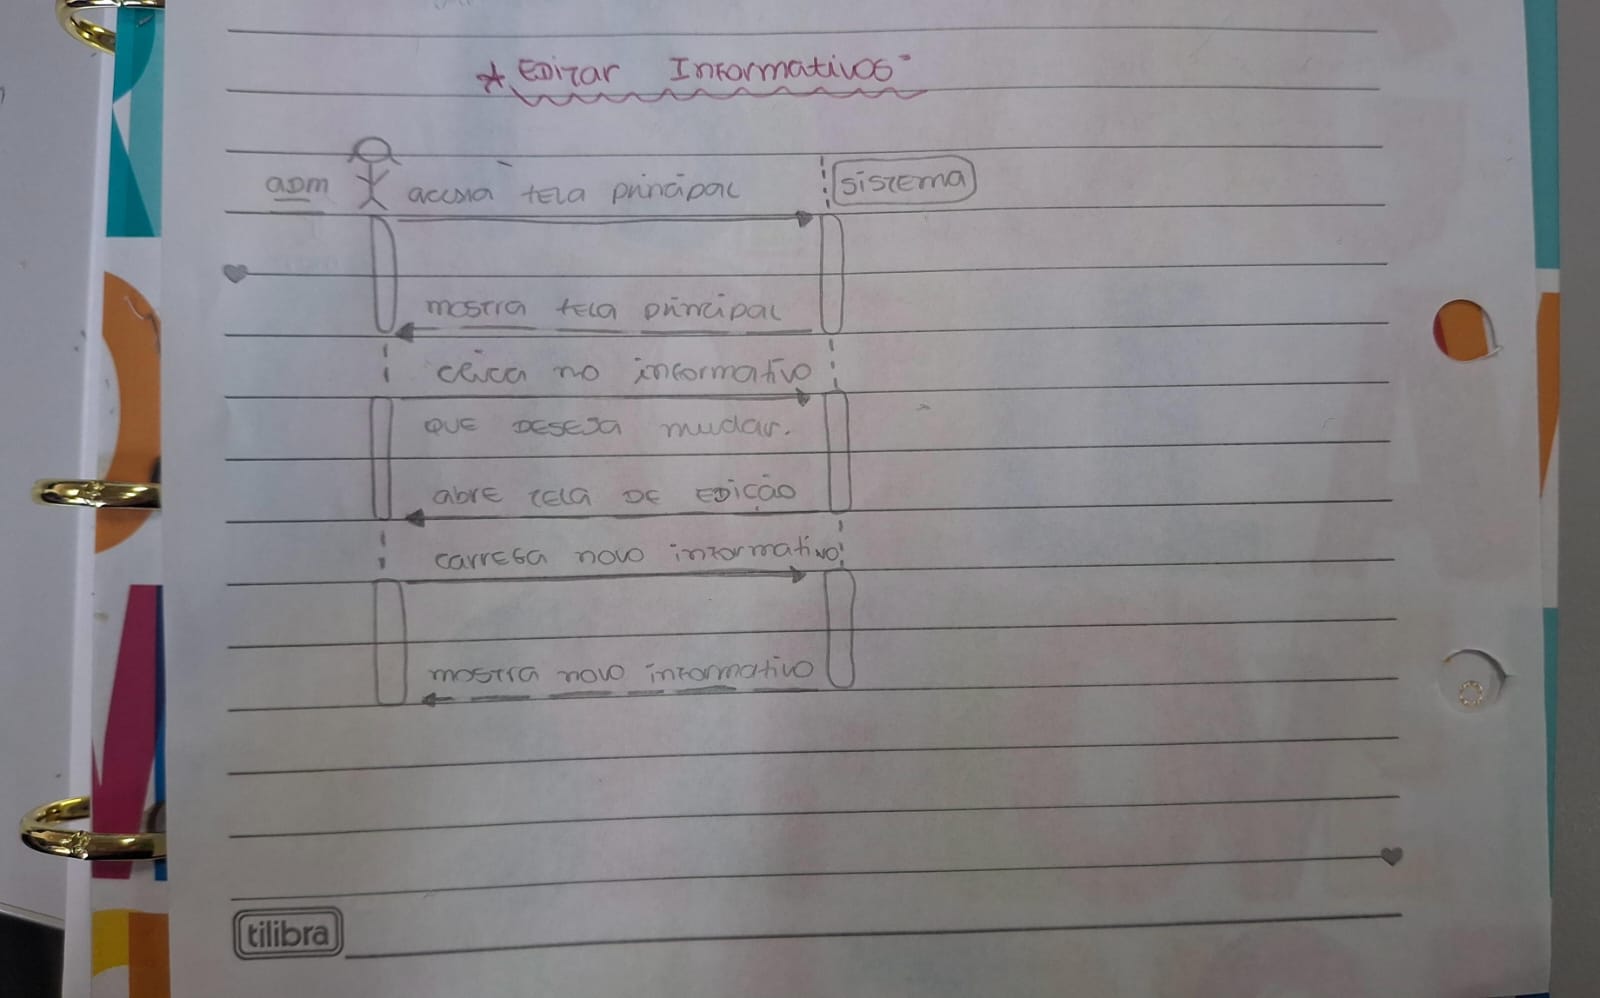 * Editar Informativos
adm
acessa tela principal
sistema
mostra tela principal
clica no informativo
que deseja mudar.
abre tela de edição
carrega novo informativo
mostra novo informativo
tilibra